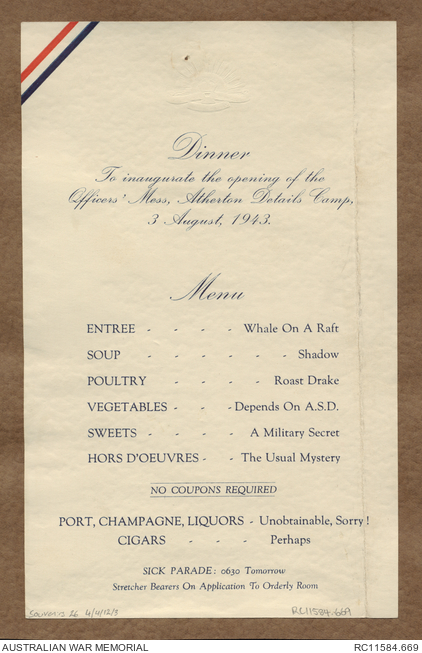 Dinner
To inaugurate the opening of the
Officers' Mess, Atherton Details Camp,
3 August, 1943.
Menu
ENTREE - - - - Whale On A Raft
SOUP - - - - - - Shadow
POULTRY - - - - Roast Drake
VEGETABLES - - - Depends On A.S.D.
SWEETS - - - - A Military Secret
HORS D'OEUVRES - - The Usual Mystery
NO COUPONS REQUIRED
PORT, CHAMPAGNE, LIQUORS - Unobtainable, Sorry!
CIGARS - - - Perhaps
SICK PARADE: 0630 Tomorrow
Stretcher Bearers On Application To Orderly Room
Souvenirs 26 4/4/12/3 RC11584.669
AUSTRALIAN WAR MEMORIAL RC11584.669